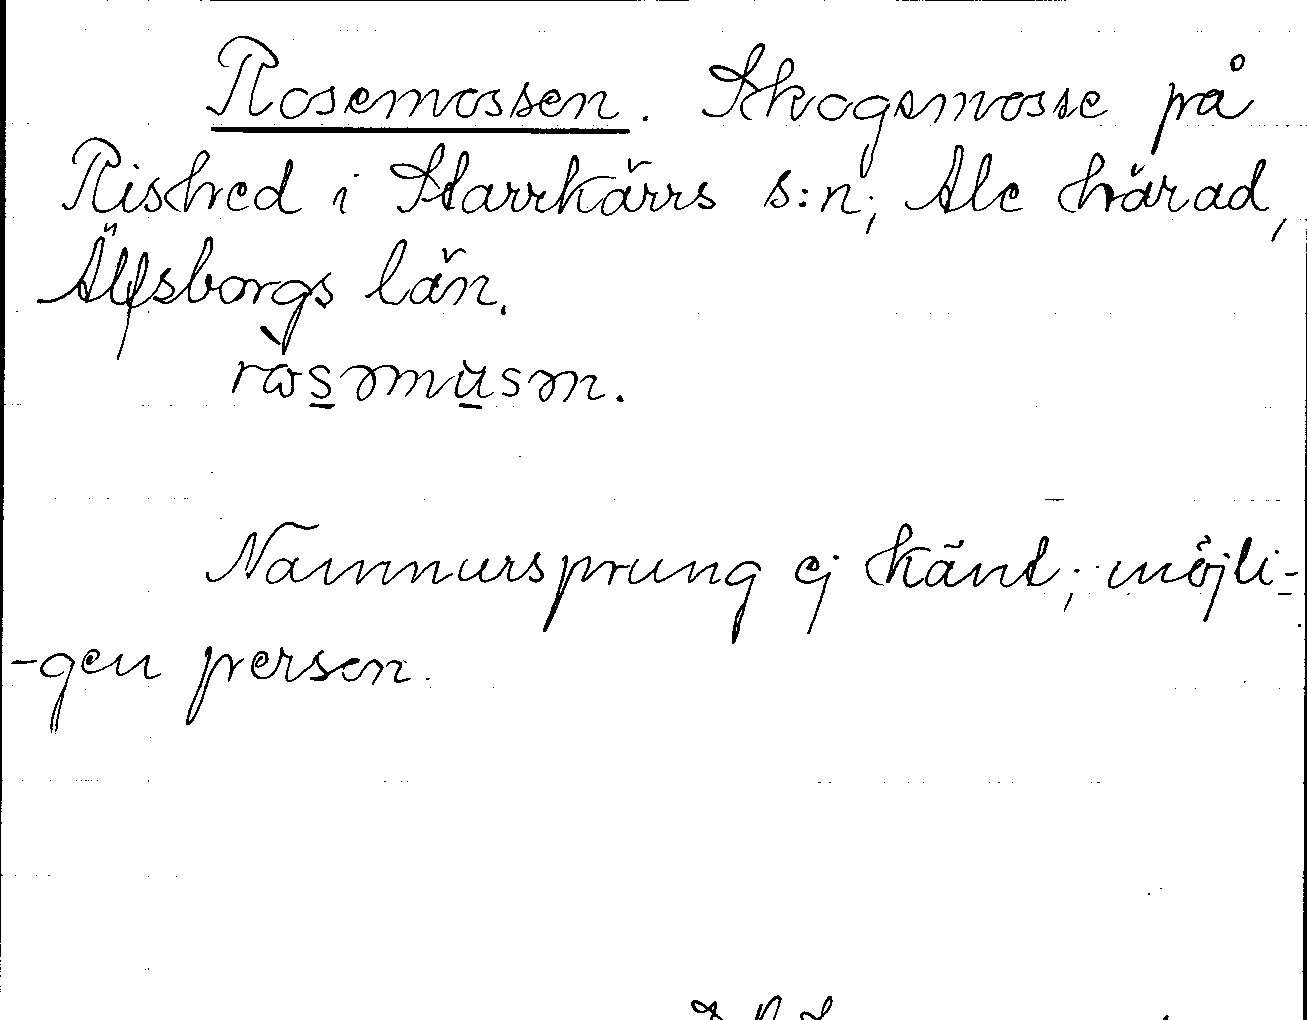 Rosemossen. Skogsmosse på
Rished i Starrkärrs s:n, Ale härad,
Älfsborgs län.
Namnursprung ej känt; möjli-
-gen person.